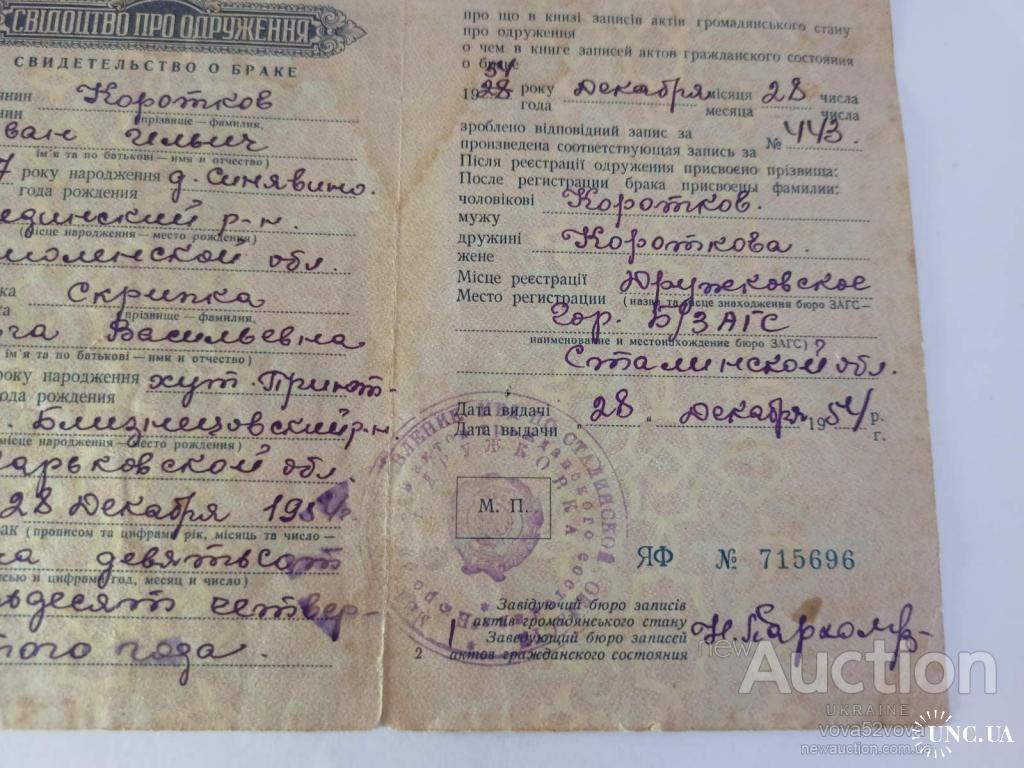 СВІДОЦТВО ПРО ОДРУЖЕННЯ
СВИДЕТЕЛЬСТВО О БРАКЕ
янин Коротков
нин прізвище – фамилия,
ван Ильич
ім'я та по батькові – имя и отчество)
7 року народження д. Синявино.
года рождения
единский р-н
(місце народження – место рождения)
моленской обл.
ка Скрипка
ка прізвище – фамилия,
ьга Васильевна
ім'я та по батькові – имя и отчество)
року народження хут.
ода рождения
Близнецовский р-н.
місце народження – место рождения)
арьковской обл
28 Декабря 1954
ак (прописом та цифрами рік, місяць та число –
ча девятьсот
сью и цифрами год, месяц и число)
ьдесят четвер-
того года.
про що в книзі записів актів громадянського стану
про одруження
о чем в книге записей актов гражданского состояния
о браке
54
1928 року Декабря місяця 28 числа
года месяца числа
зроблено відповідний запис за
произведена соответствующая запись за № 443.
Після реєстрації одруження присвоєно прізвища:
После регистрации брака присвоены фамилии:
чоловікові Коротков.
мужу
дружині Короткова.
жене
Місце реєстрації Дружковское
Место регистрации (назва та місце знаходження бюро ЗАГС–
Гор. Б/ЗАГС
наименование и местонахождение бюро ЗАГС)
Сталинской обл.
Дата видачі "28" Декабря 1954 р.
Дата выдачи г.
М. П.
ДРУЖКОВКА
ЯФ № 715696
Завідуючий бюро записів
актів громадянського стану
Заведующий бюро записей
актов гражданского состояния
2
new Auction
UKRAINE
vova52vova
newauction.com.ua
UNC.UA